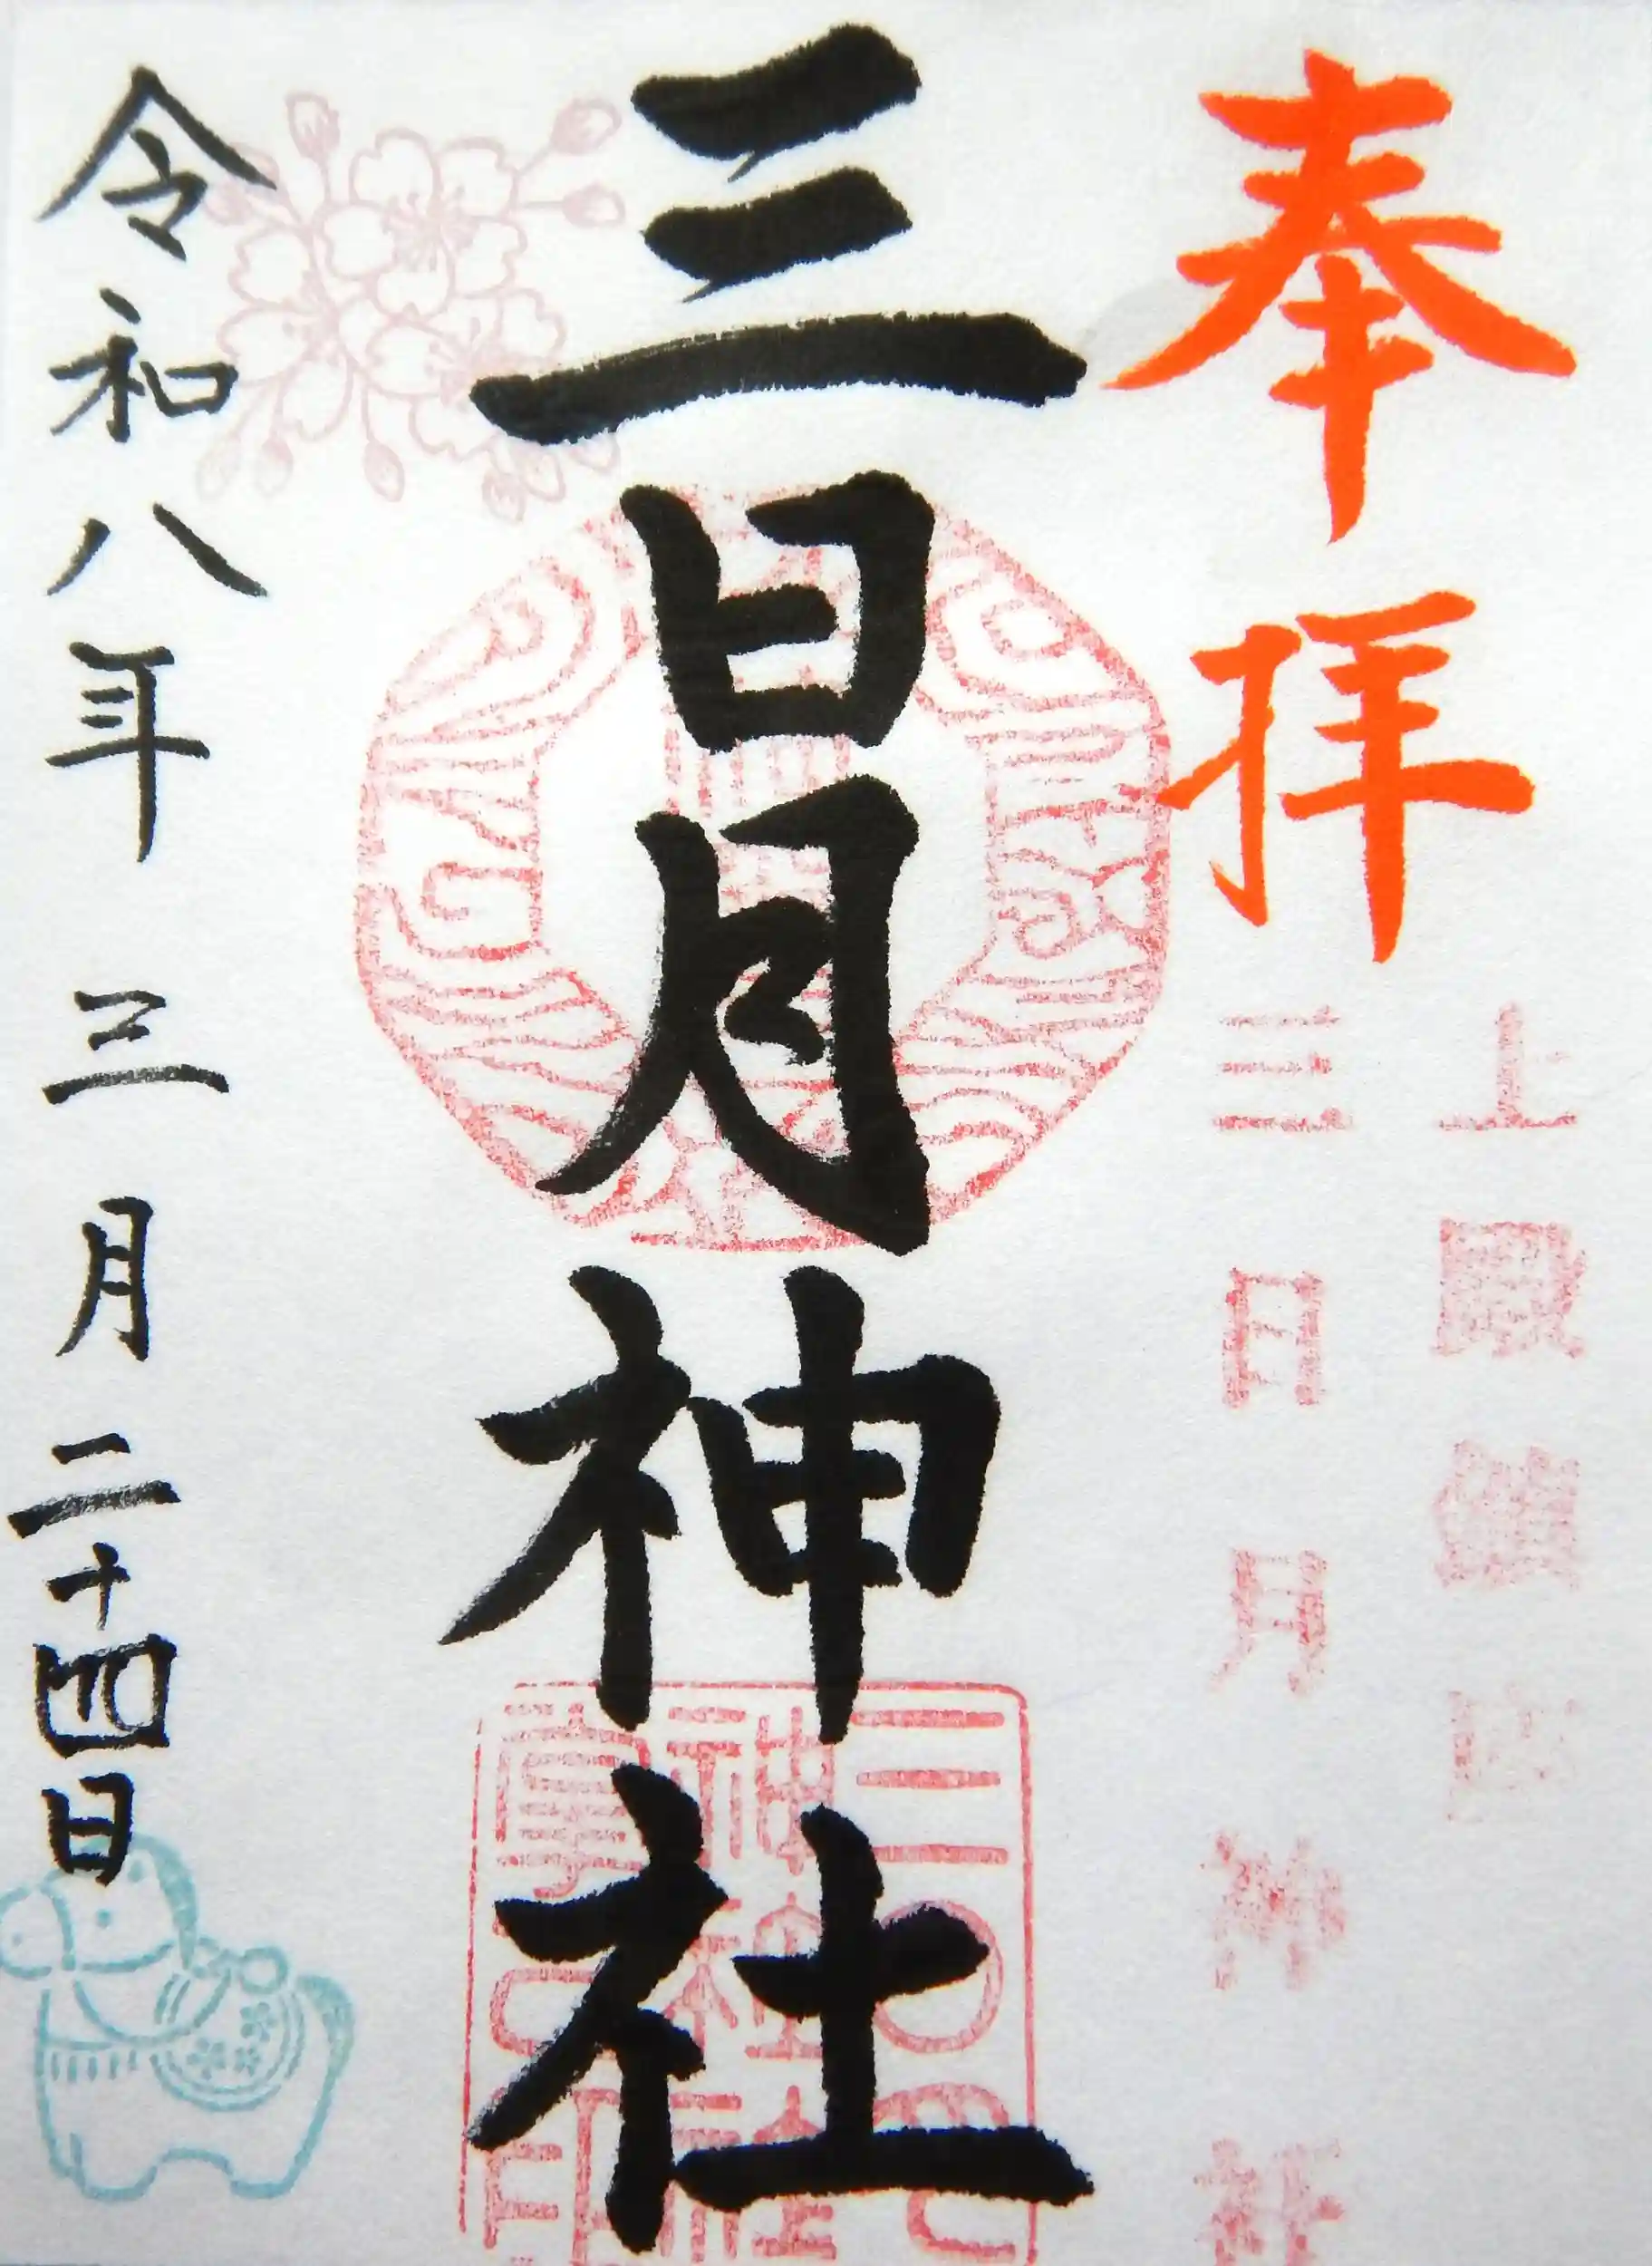 奉拝
三日月神社
三日月神社
令和八年三月二十四日